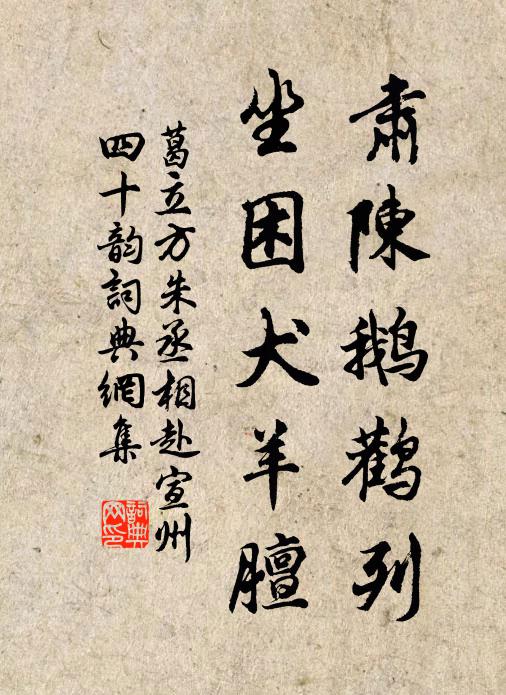 肅陳鵝鸛列
坐困犬羊膻
葛立方朱丞相赴宣州
四十韵詞典網集
詞典網印